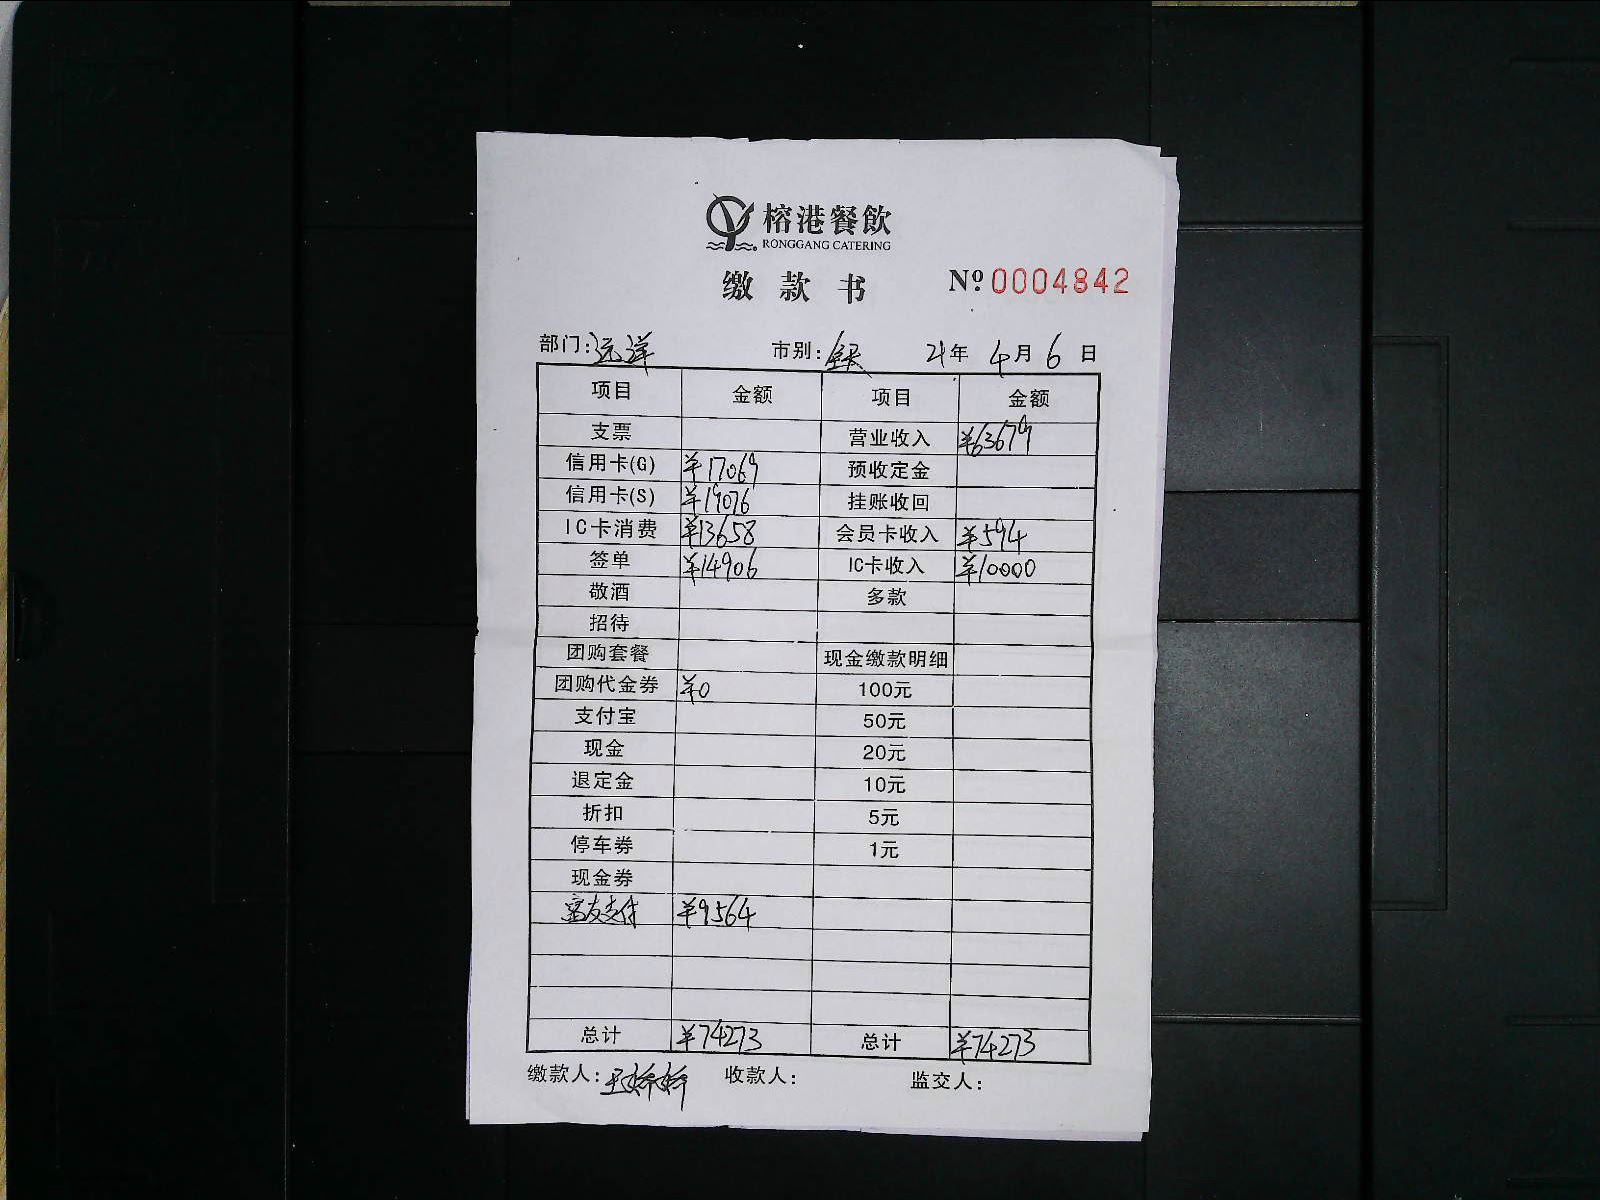 榕港餐飲
RONGGANG CATERING
缴款书 Nº 0004842
部门：远洋 市别：全天 21年 4月 6日
项目 金额 项目 金额
支票 营业收入 ¥63679
信用卡(G) ¥17069 预收定金
信用卡(S) ¥19076 挂账收回
IC卡消费 ¥13658 会员卡收入 ¥594
签单 ¥14906 IC卡收入 ¥10000
敬酒 多款
招待
团购套餐 现金缴款明细
团购代金券 ¥0 100元
支付宝 50元
现金 20元
退定金 10元
折扣 5元
停车券 1元
现金券
富友支付 ¥9564
总计 ¥74273 总计 ¥74273
缴款人： 收款人： 监交人：